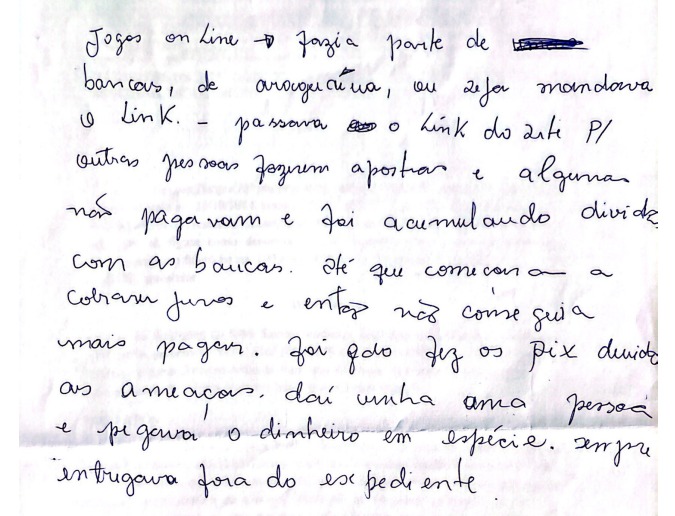 Jogos on line → fazia parte de
bancas, de araquaína, ou seja mandava
o link. - passava o link do site P/
outras pessoas fazerem apostas e algumas
não pagavam e foi acumulando divida
com as bancas. até que começaram a
cobrarem juros e então não conseguia
mais pagar. foi qdo fez os pix devido
as ameaças. daí vinha uma pessoa
e pegava o dinheiro em espécie. sempre
entregava fora do expediente.